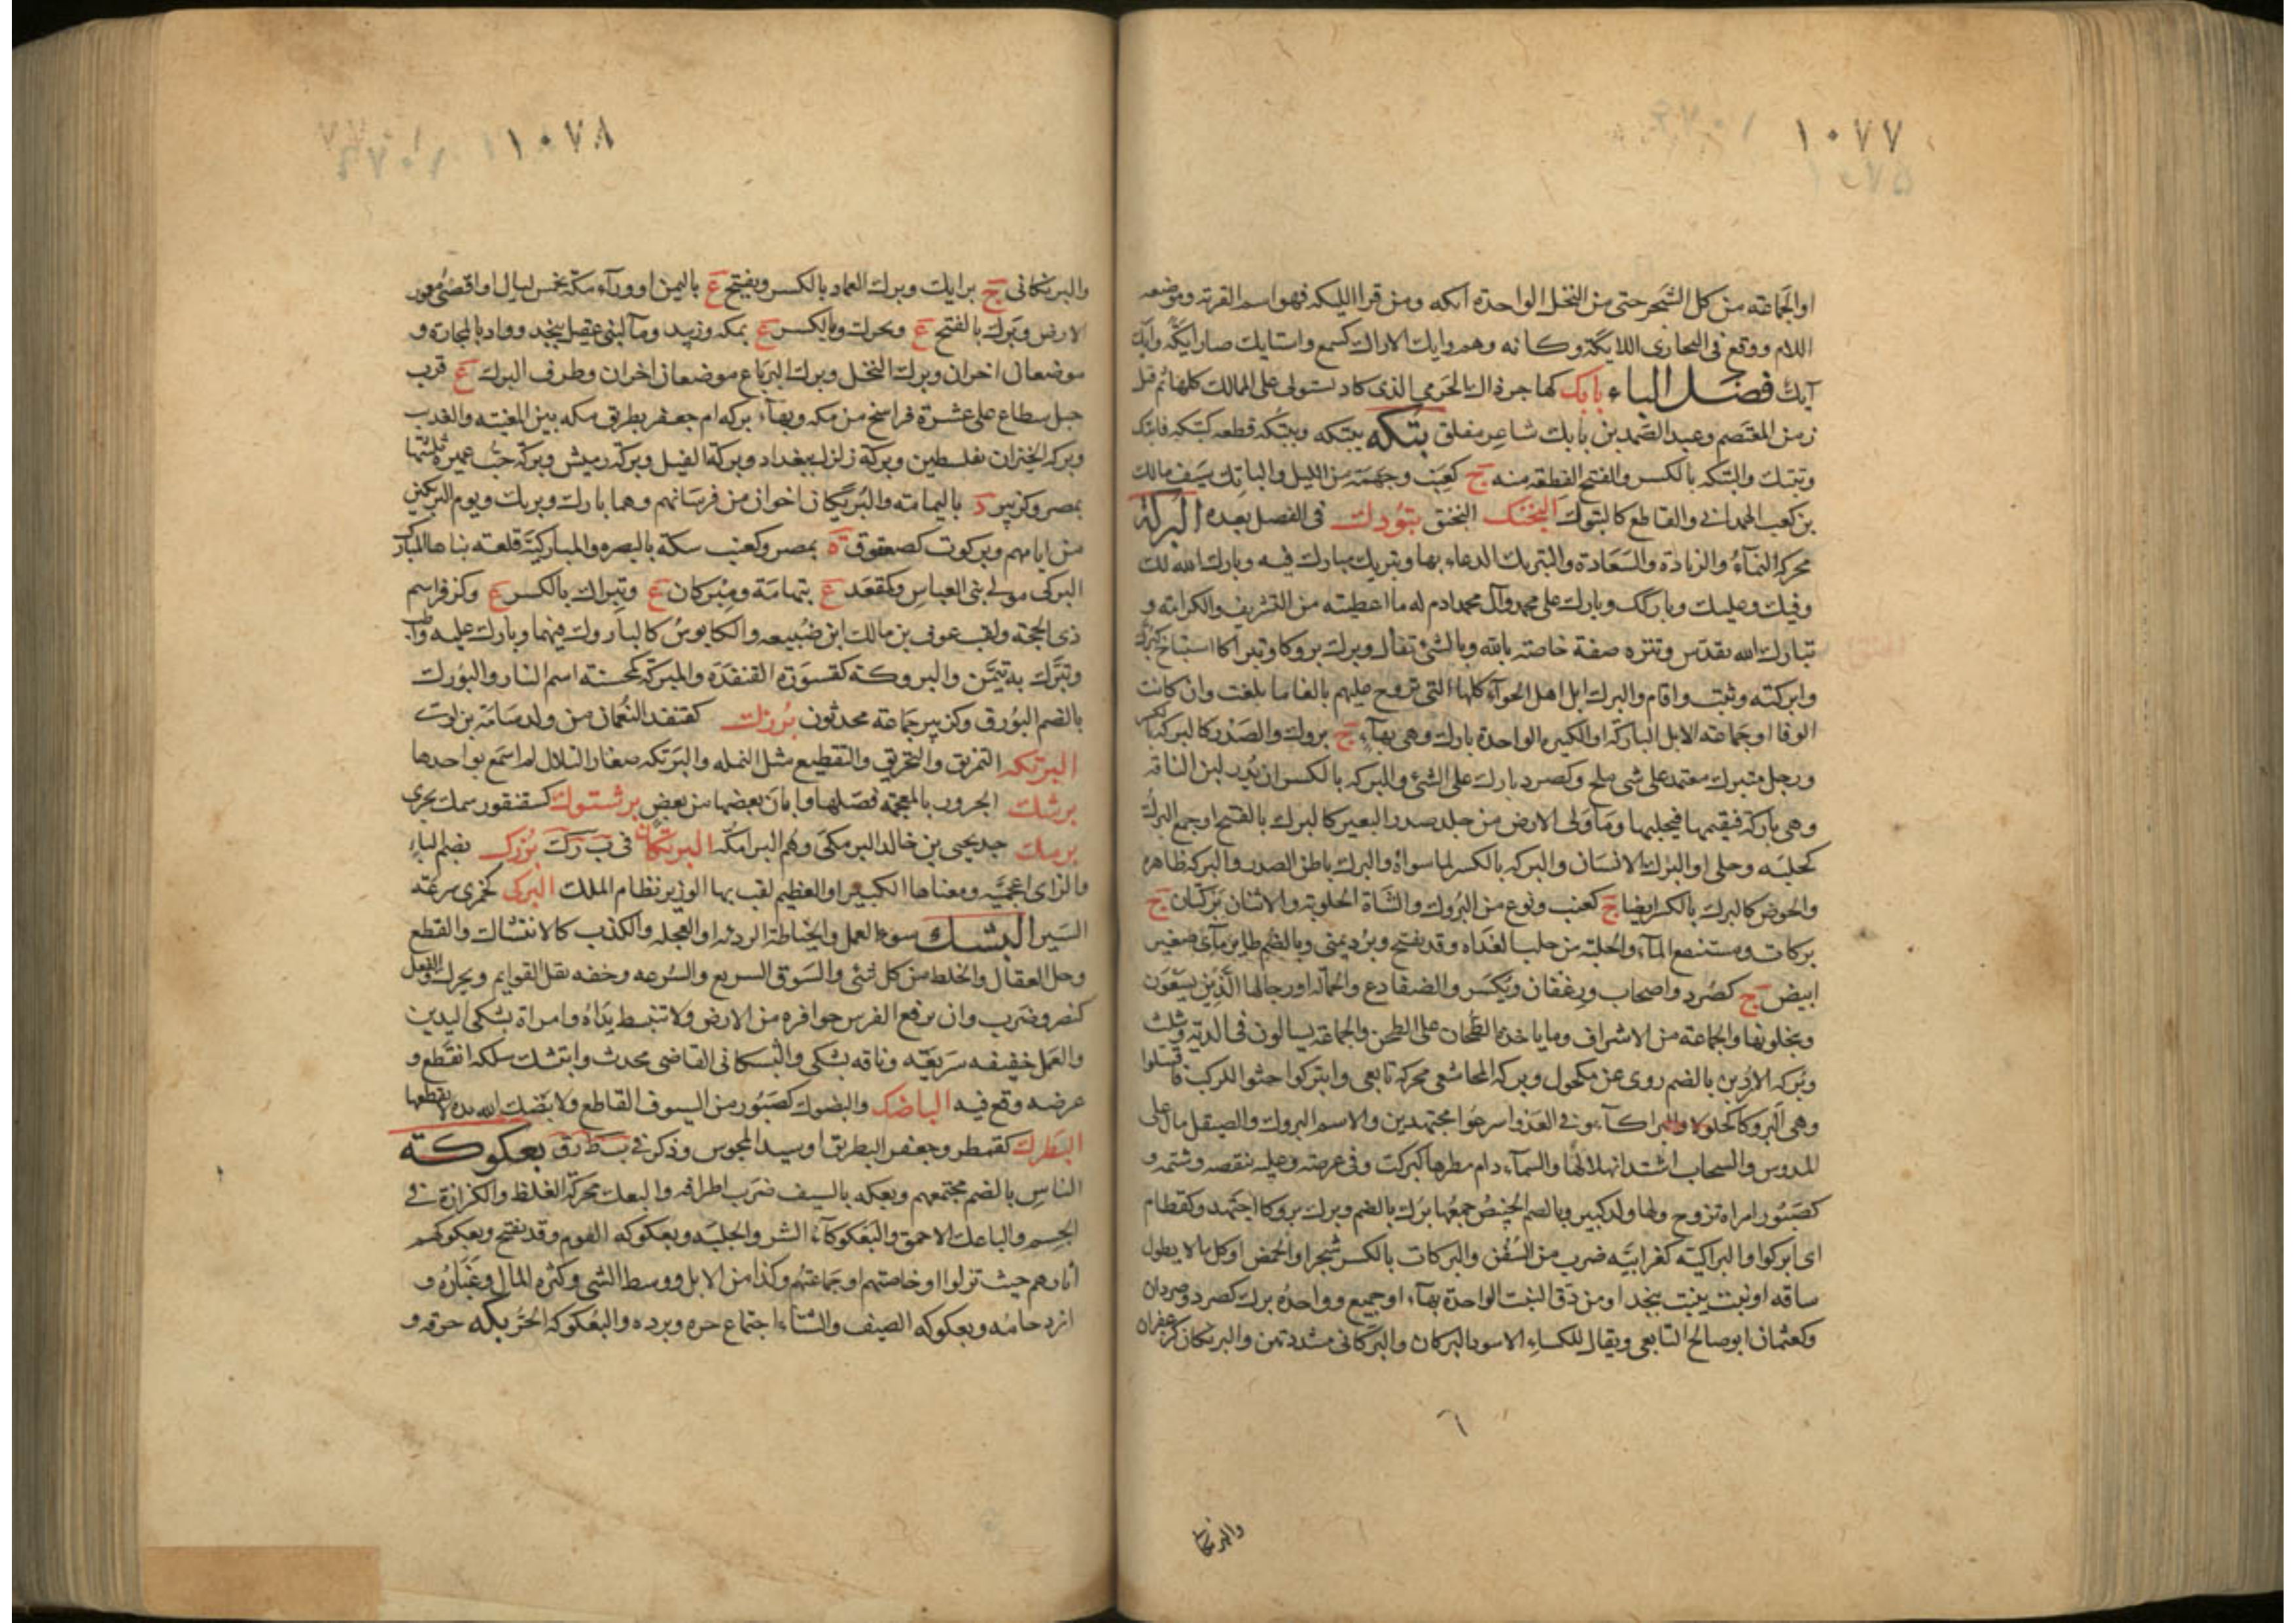 ١٠٧٧
او الجماعة من كل الشجر حتى من النخل الواحدة ايكه ومن قرا الليكه فهو اسم القرية وموضعه
اللام ووقع فى البخارى اللايكة وكانه وهم وايك الاراك كسمع واستايك صار ايكة وايك
آيك فصل الباء بابك كهاجر ذاك الخرمى الذى كاد يستولى على الممالك كلها ثم قتل
زمن المعتصم وعبد الصمد بن بابك شاعر مفلق بتكه يبتكه ويبتكه قطعه كبتكه فانبتك
وتبتك والبتكه بالكسر والفتح القطعه منه ج كعنب وجهمة من الليل والباتك سيف مالك
بن كعب الهمدانى والقاطع كالبتوك البخنك البخنق بتودك فى الفصل بعده البركة
محركة النمآء والزيادة والسعادة والتبريك الدعاء بها وبريك مبارك فيه وبارك الله لك
وفيك وعليك وباركك وبارك على محمد وآل محمد ادم له ما اعطيته من التشريف والكرامة و
تبارك الله تقدس وتنزه صفة خاصة بالله وبالشئ تفآل وبرك بروكا وتبراكا استناخ كبرك
وابركته وثبت واقام والبرك ابل اهل الحوآء كلها التى تروح عليهم بالغا ما بلغت وان كانت
الوفا او جماعة الابل الباركة او الكثيره الواحدة بارك وهى بهآء ج بروك والصدر كالبركة بالكسر
ورجل متبرك معتمد على شى ملح وكصرد بارك على الشئ والبركه بالكسر ان يدر لبن الناقه
وهى باركة فيقيمها فيحلبها وما ولى الارض من جلد صدر البعير كالبرك بالفتح او جمع البرك
كحلية وحلى او البرك للانسان والبركه بالكسر لما سواه والبرك باطن الصدر والبركه ظاهره
والحوض كالبرك بالكسر ايضا ج كعنب ونوع من البروك والشاة الحلوبة والاثنان بركتان ج
بركات ومستنقع المآء والحلبة من حلب الغداه وقد يفتح وبرد يمنى وبالضم طاير مآئى صغير
ابيض ج كصرد واصحاب ورغفان ويكسر والضفادع والحماله او رجالها الذين يسعون
ويتحملونها والجماعة من الاشراف وما ياخذه الطحان على الطحن والجماعة يسالون فى الدية ويثلث
وبركه الاردنى بالضم روى عن مكحول وبركه المجاشعى محركة تابعى وابتركوا جثوا للركب فاقتتلوا
وهى البروكا كجلولا والبراكآء وفى العدو اسرعوا مجتهدين والاسم البروك والصيقل مال على
المدوس والسحاب اشتد انهلاله والسمآء دام مطرها كبركت وفى عرضه وعليه ينقصه وشتمه و
كصبور امراة تزوج ولها ولد كبير وبالضم الخبيص جمعها برك بالضم وبرك بروكا اجتهد وكقطام
اى ابركوا والبراكيه كغرابيه ضرب من السفن والبركات بالكسر شجر او الحمض او كل ما لا يطول
ساقه او نبت ينبت بنجد او من دق النبت الواحدة بهآء او جميع وواحده برك كصرد وصردان
وكعثمان ابو صالح التابعى ويقال للكساء الاسود البركان والبركانى مشددتين والبرنكان كزعفران
والبرنكانى
١٠٧٨
والبرنكانى ج برانك وبرك الغماد بالكسر ويفتح ع باليمن او ورآء مكة بخمس ليال او اقصى معمور
الارض وبرك بالفتح ع ويحرك وبالكسر ع بمكه وزبيد ومآ لبنى عقيل بنجد وواد بالمجازة و
موضعان اخران وبرك النخل وبرك الترياع موضعان اخران وطرف البرك ع قرب
جبل سطاع على عشرة فراسخ من مكه وبهآء بركه ام جعفر بطريق مكه بين المغيثه والعذيب
وبركه الخيزران بفلسطين وبركة زلزل ببغداد وبركة الفيل وبركة رميش وبركة جب عميرة ثلثتها
بمصر وكزبير د باليمامه والبريكان اخوان من فرسانهم وهما بارك وبريك ويوم البريكين
من ايامهم وبركوت كصعفوق ة بمصر وكعنب سكة بالبصره والمباركية قلعه بناها المبارك
البركى مولى بنى العباس وكمقعد ع بتهامة ومبركان ع وتبراك بالكسر ع وكزفر اسم
ذى الحجة ولقب عوف بن مالك ابن ضبيعه والكابوس كالباروك فيهما وبارك عليه واظب
وتبرك به تيمن والبروكة كقسورة القنفذة والمبركة كمحسنة اسم النار والبورك
بالضم البورق وكزبير جماعة محدثون برزك كقنفذ النعمان من ولد سامة بن لوى
البرتكه التمزيق والتخريق والتقطيع مثل النمله والبرتكه صغار التلال لم اسمع بواحدها
برشك الجزور بالمعجمه فصلها وابان بعضها من بعض برشتوك كسقنقور سمك بحرى
برمك جد يحيى بن خالد البرمكى وهم البرامكه البرنكان فى ب ر ك بزرك بضم الباء
والزاى اعجمية ومعناها الكبير او العظيم لقب بها الوزير نظام الملك البزكى كجمزى سرعة
السير البشك سوء العمل والخياطة الرديه او العجله والكذب كالابتشاك والقطع
وحل العقال والخلط من كل شئ والسوق السريع والسرعه وخفه نقل القوايم ويحرك والفعل
كنصر وضرب وان يرفع الفرس حوافره من الارض ولا تنبسط يداه وامراة بشكى اليدين
والعمل خفيفه سريعه وناقه بشكى والبشكانى القاضى محدث وابتشك سلكه انقطع و
عرضه وقع فيه الباضك والبضوك كصبور من السيوف القاطع ولا يبضك الله يده لا يقطعها
البطرك كقمطر وجعفر البطريق او سيد المجوس وذكر فى ب ط ر ق بعكوكة
الناس بالضم مجتمعهم وبعكه بالسيف ضرب اطرافه والبعك محركة الغلظ والكزازة فى
الجسم والباعك الاحمق والبعكوكآء الشر والجلبة وبعكوكه القوم وقد يفتح وبعكوكهم
اثارهم حيث نزلوا او خاصتهم او جماعتهم وكذا من الابل ووسط الشئ وكثره المال وغباره و
ازدحامه وبعكوكه الصيف والشتاء اجتماع حره وبرده والبعكوكه الحر بكه خرقه و